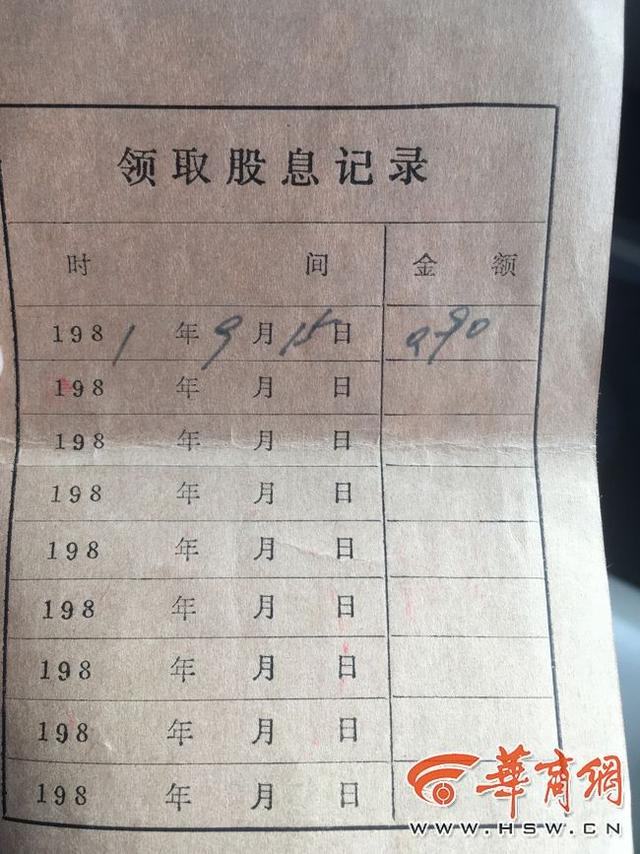 领取股息记录
时 间 金 额
1981年9月15日
198 年 月 日
198 年 月 日
198 年 月 日
198 年 月 日
198 年 月 日
198 年 月 日
198 年 月 日
198 年 月 日
华商网
WWW.HSW.CN